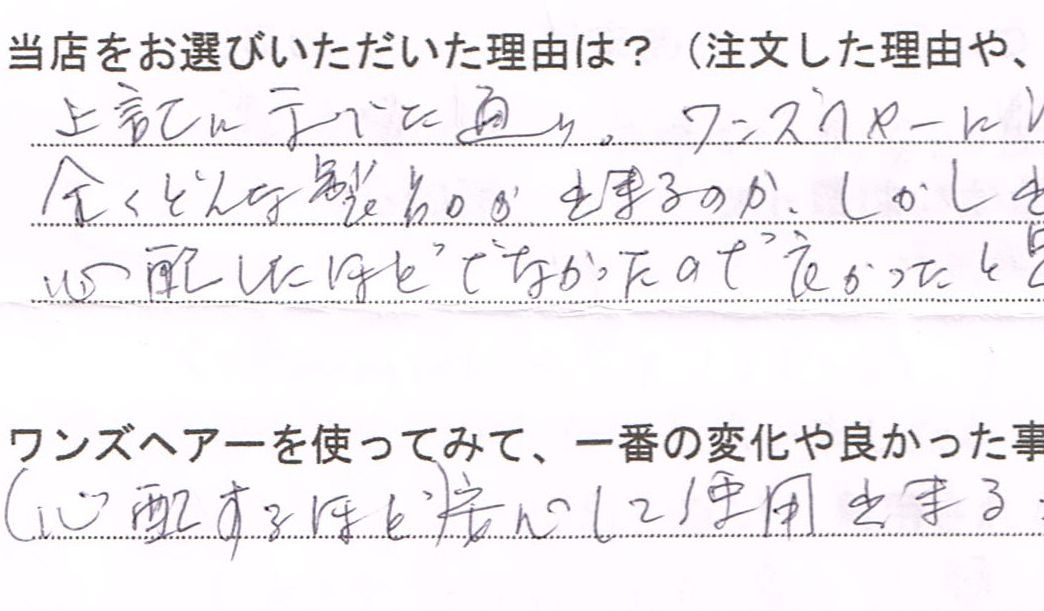 当店をお選びいただいた理由は？（注文した理由や、
上記に示べた通り。ワンズヘヤーに
全くどんな製品が来るのか、しかし
心配したほどでなかったので良かったと
ワンズヘアーを使ってみて、一番の変化や良かった事
（心配するほど）安心して使用出来る